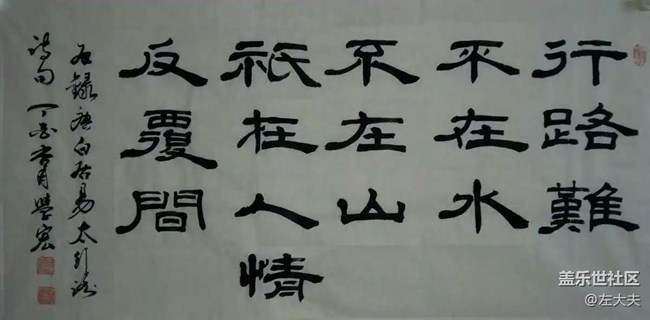 行路難
不在水
不在山
祇在人情
反覆間
右録唐白居易太行路
詩句 丁酉 月
盖乐世社区
@左大夫